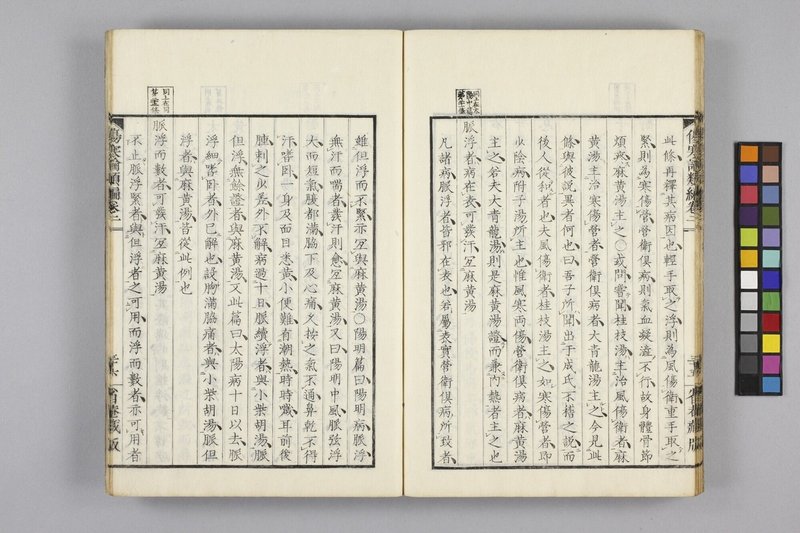 此條再釋其病因也輕手取之浮則為風傷衛重手取之
緊則為寒傷營營衛俱病則氣血凝澁不行故身體骨節
煩疼麻黃湯主之○或問嘗聞桂枝湯主治風傷衛者麻
黃湯主治寒傷營者營衛俱病者大青龍湯主之今見此
條與彼說異者何也曰吾子所聞出于成氏不稽之說而
後人從和者也夫風傷衛者桂枝湯主之如寒傷營者即
少陰病附子湯所主也惟風寒兩傷營衛俱病者麻黃湯
主之若夫大青龍湯則是麻黃湯證而兼內熱者主之也
脈浮者病在表可發汗宜麻黃湯
凡諸病脈浮者皆邪在表也若屬表實營衛俱病所致者
雖但浮而不緊亦宜與麻黃湯○陽明篇曰陽明病脈浮
無汗而喘者發汗則愈宜麻黃湯又曰陽明中風脈弦浮
大而短氣腹都滿脇下及心痛久按之氣不通鼻乾不得
汗嗜卧一身及面目悉黃小便難有潮熱時時噦耳前後
腫刺之少差外不解病過十日脈續浮者與小柴胡湯脈
但浮無餘證者與麻黃湯又此篇曰太陽病十日以去脈
浮細嗜卧者外已解也設胸滿脇痛者與小柴胡湯脈但
浮者與麻黃湯皆從此例也
脈浮而數者可發汗宜麻黃湯
不止脈浮緊者與但浮者之可用而浮而數者亦可用者
傷寒論類編卷二